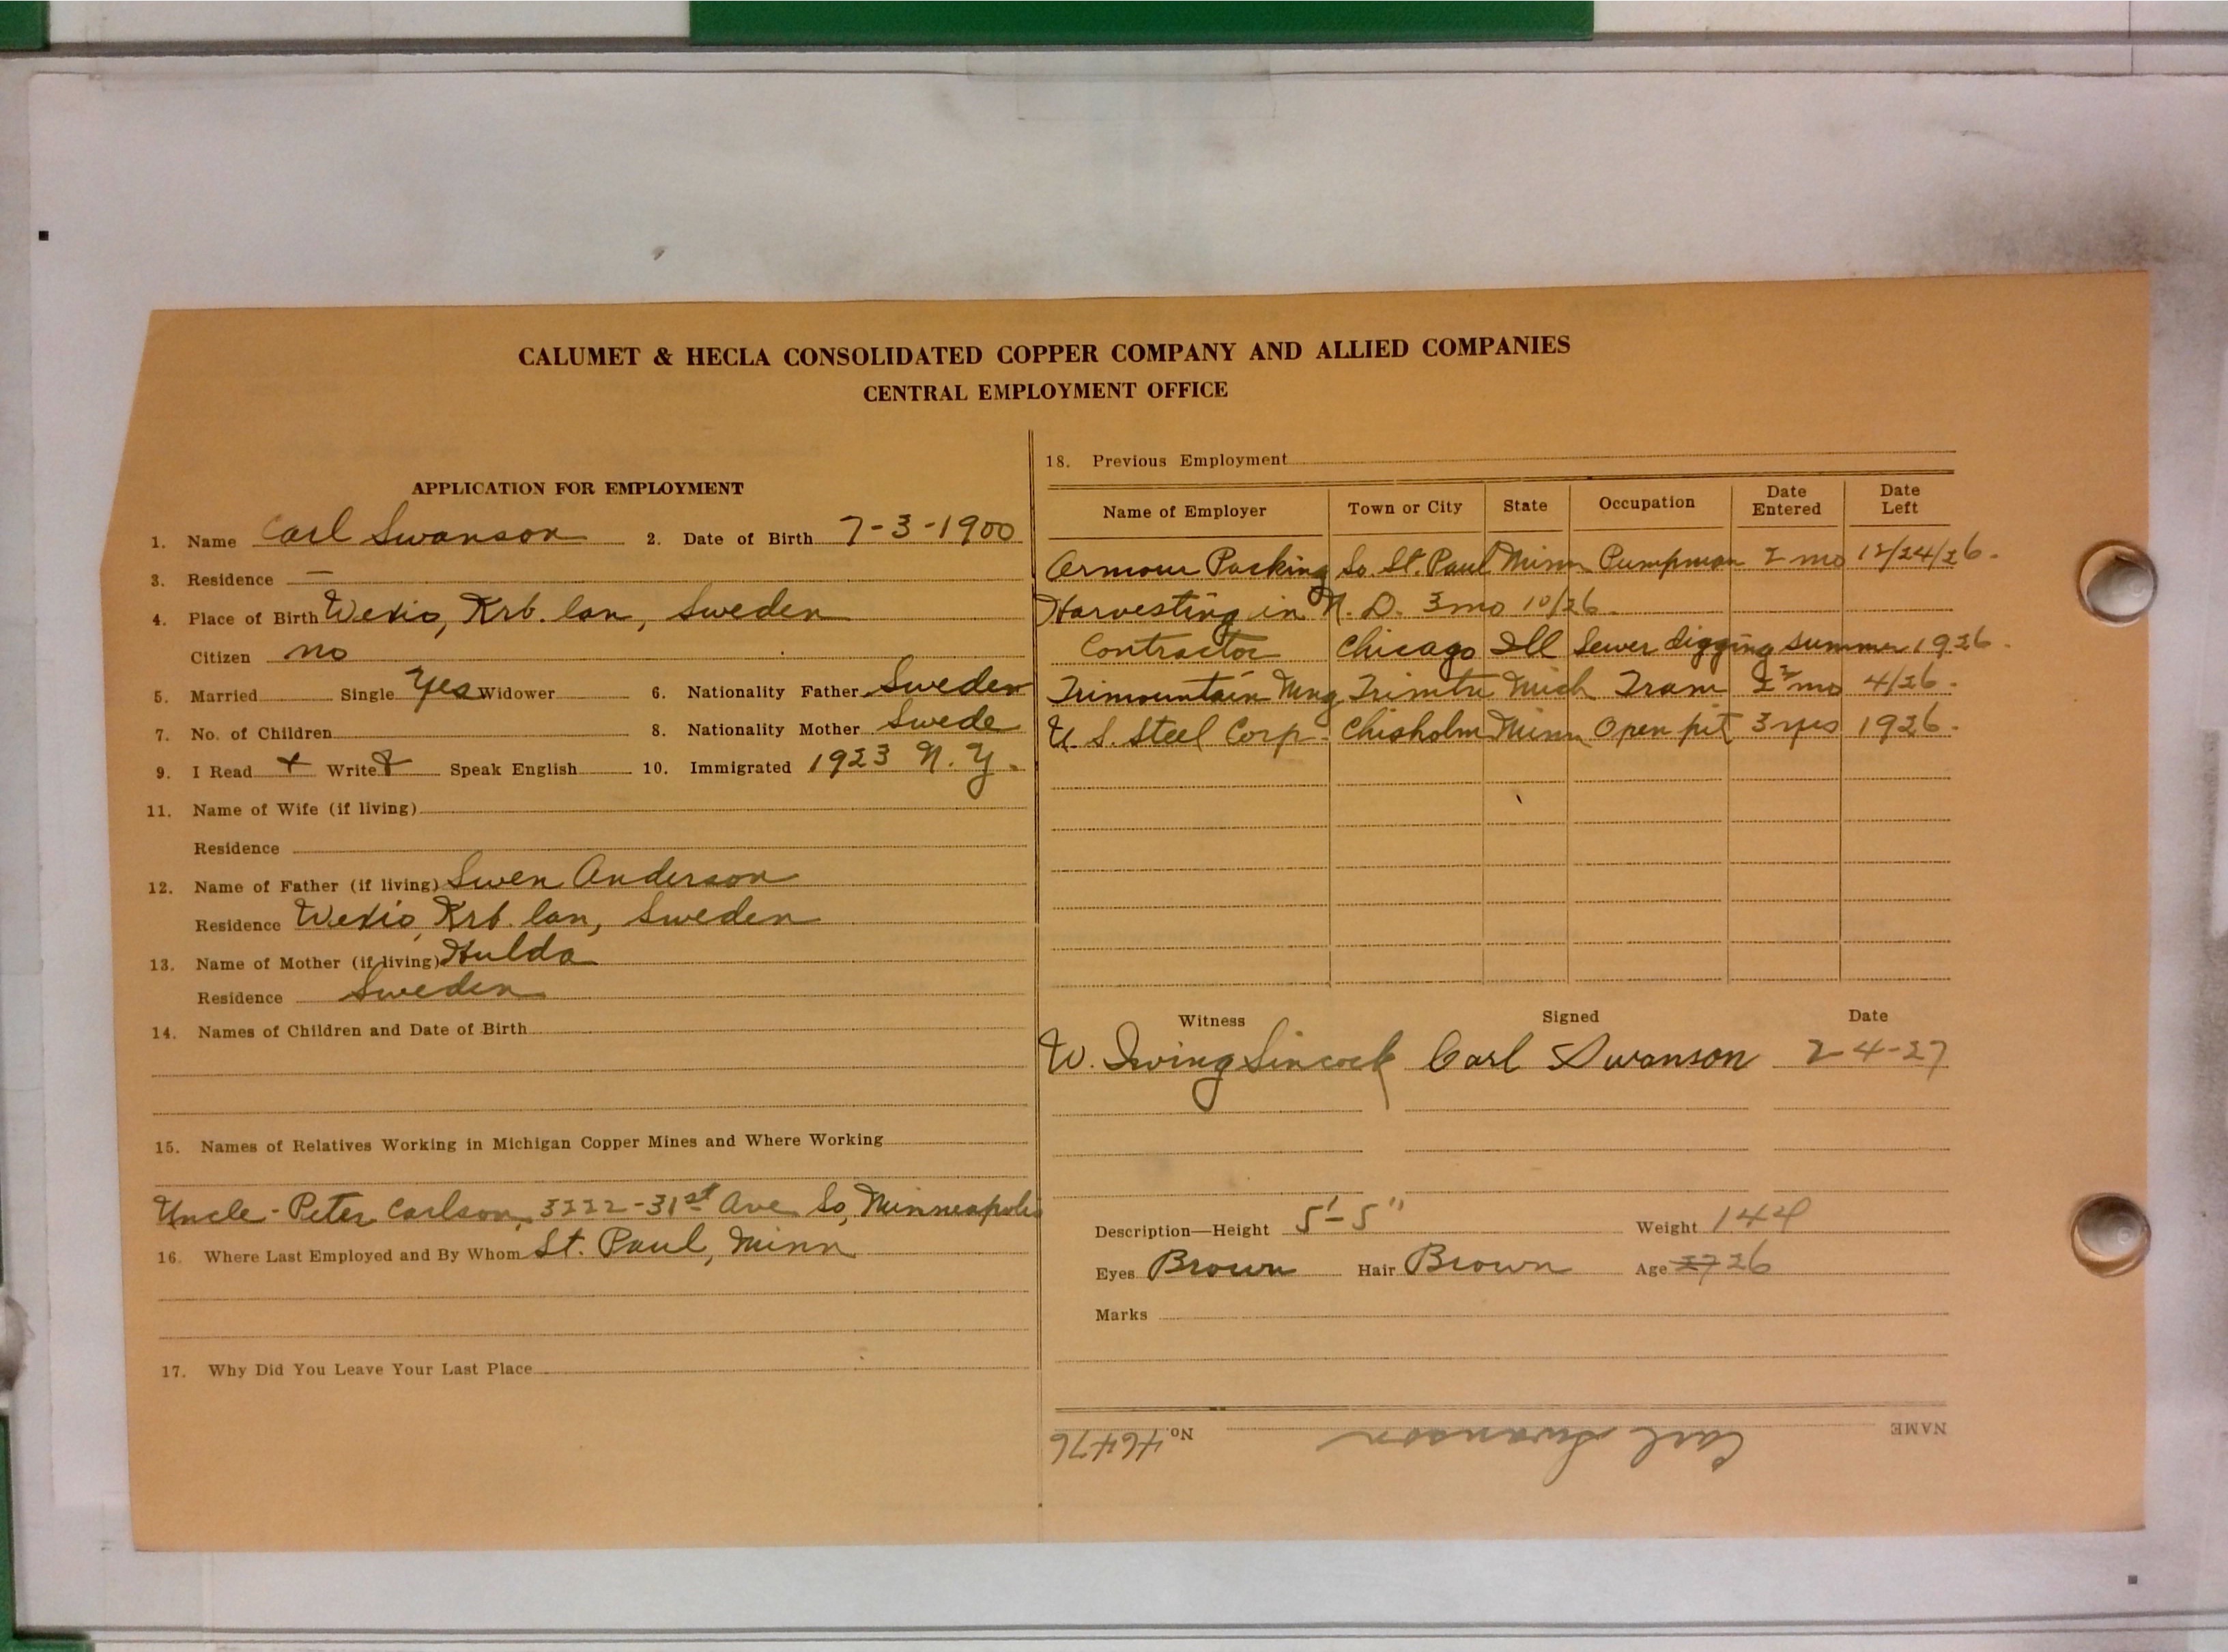 CALUMET & HECLA CONSOLIDATED COPPER COMPANY AND ALLIED COMPANIES
CENTRAL EMPLOYMENT OFFICE
APPLICATION FOR EMPLOYMENT
1. Name Carl Swanson 2. Date of Birth 7-3-1900
3. Residence —
4. Place of Birth Wexio, Krb. lan, Sweden
Citizen no
5. Married Single Yes Widower 6. Nationality Father Sweden
7. No. of Children 8. Nationality Mother Swede
9. I Read + Write + Speak English 10. Immigrated 1923 N.Y.
11. Name of Wife (if living)
Residence
12. Name of Father (if living) Swen Anderson
Residence Wexio, Krb. lan, Sweden
13. Name of Mother (if living) Hulda
Residence Sweden
14. Names of Children and Date of Birth
15. Names of Relatives Working in Michigan Copper Mines and Where Working
Uncle - Peter Carlson, 3222-31st Ave So, Minneapolis
16. Where Last Employed and By Whom St. Paul, Minn
17. Why Did You Leave Your Last Place
18. Previous Employment
Name of Employer Town or City State Occupation Date Entered Date Left
Armour Packing So. St. Paul Minn Pumpman 2 mo 12/24/26.
Harvesting in N. D. 3 mo 10/26.
Contractor Chicago Ill Sewer digging summer 1926.
Trimountain Mng Trimtn Mich Tram mo 4/26.
U. S. Steel Corp. Chisholm Minn Open pit 3 yrs 1926.
Witness Signed Date
W. Irving Sincock Carl Swanson 2-4-27
Description—Height 5'-5" Weight 144
Eyes Brown Hair Brown Age 27 26
Marks
NAME Carl Swanson No. 46476